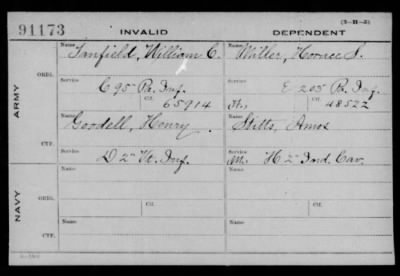 (3-11-5)
91173 INVALID DEPENDENT
ARMY
ORIG.
Name Name
Fanfield, William C. Miller, Horace S.
Service Service
C 95 Pa. Inf. E 205 Pa. Inf.
Ctf. Ctf.
65914 48522
CTF.
Name Name
Goodell, Henry Stitts, Amos
Service Service
D 2" Vt. Inf. M. H 2" Ind. Cav.
NAVY
ORIG.
Name Name
Service Ctf. Service Ctf.
CTF.
Name Name